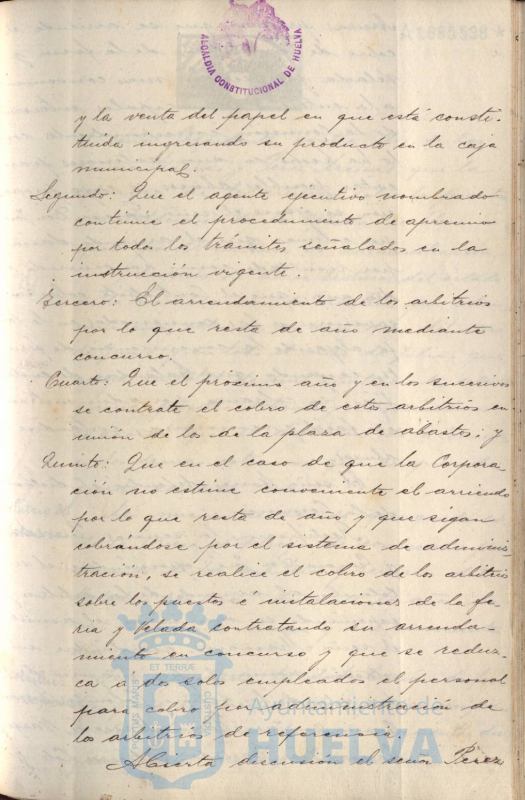 A1685838*
ALCALDIA CONSTITUCIONAL DE HUELVA
y la venta del papel en que está consti-
tuida ingresando su producto en la caja
municipal.
Segundo: Que el agente ejecutivo nombrado
continúe el procedimiento de apremio
por todos los trámites señalados en la
instrucción vigente.
Tercero: El arrendamiento de los arbitrios
por lo que resta de año mediante
concurso.
Cuarto: Que el próximo año y en los sucesivos
se contrate el cobro de estos arbitrios en
unión de los de la plaza de abastos; y
Quinto: Que en el caso de que la Corpora-
ción no estime conveniente el arriendo
por lo que resta de año y que sigan
cobrándose por el sistema de adminis-
tración, se realice el cobro de los arbitrios
sobre los puestos é instalaciones de la fe-
ria y Velada contratando su arrenda-
miento en concurso y que se reduz-
ca a dos solo empleados el personal
para cobro por administración de
los arbitrios de referencia.
Abierta discusión el señor Pérez
PORTUS MARIS ET TERRAE CUSTODIA
Ayuntamiento de
HUELVA